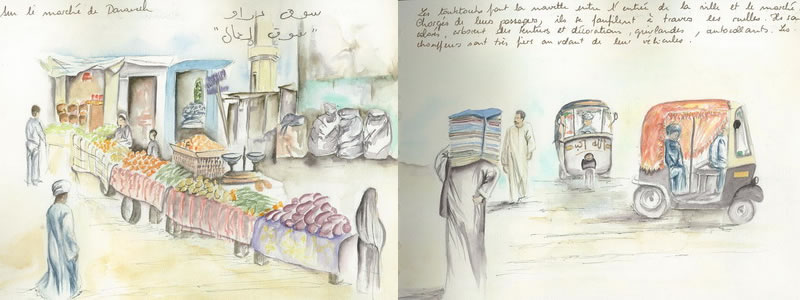 Sur le marché de Daraweh
سوق دراو
"سوق الجمال"
Les touktouks font la navette entre l'entrée de la ville et le marché.
Chargés de leurs passagers, ils se faufilent à travers les ruelles. Ils
colorés, arborent des tentures et décorations, guirlandes, autocollants. Les
chauffeurs sont très fiers au volant de leur véhicule.